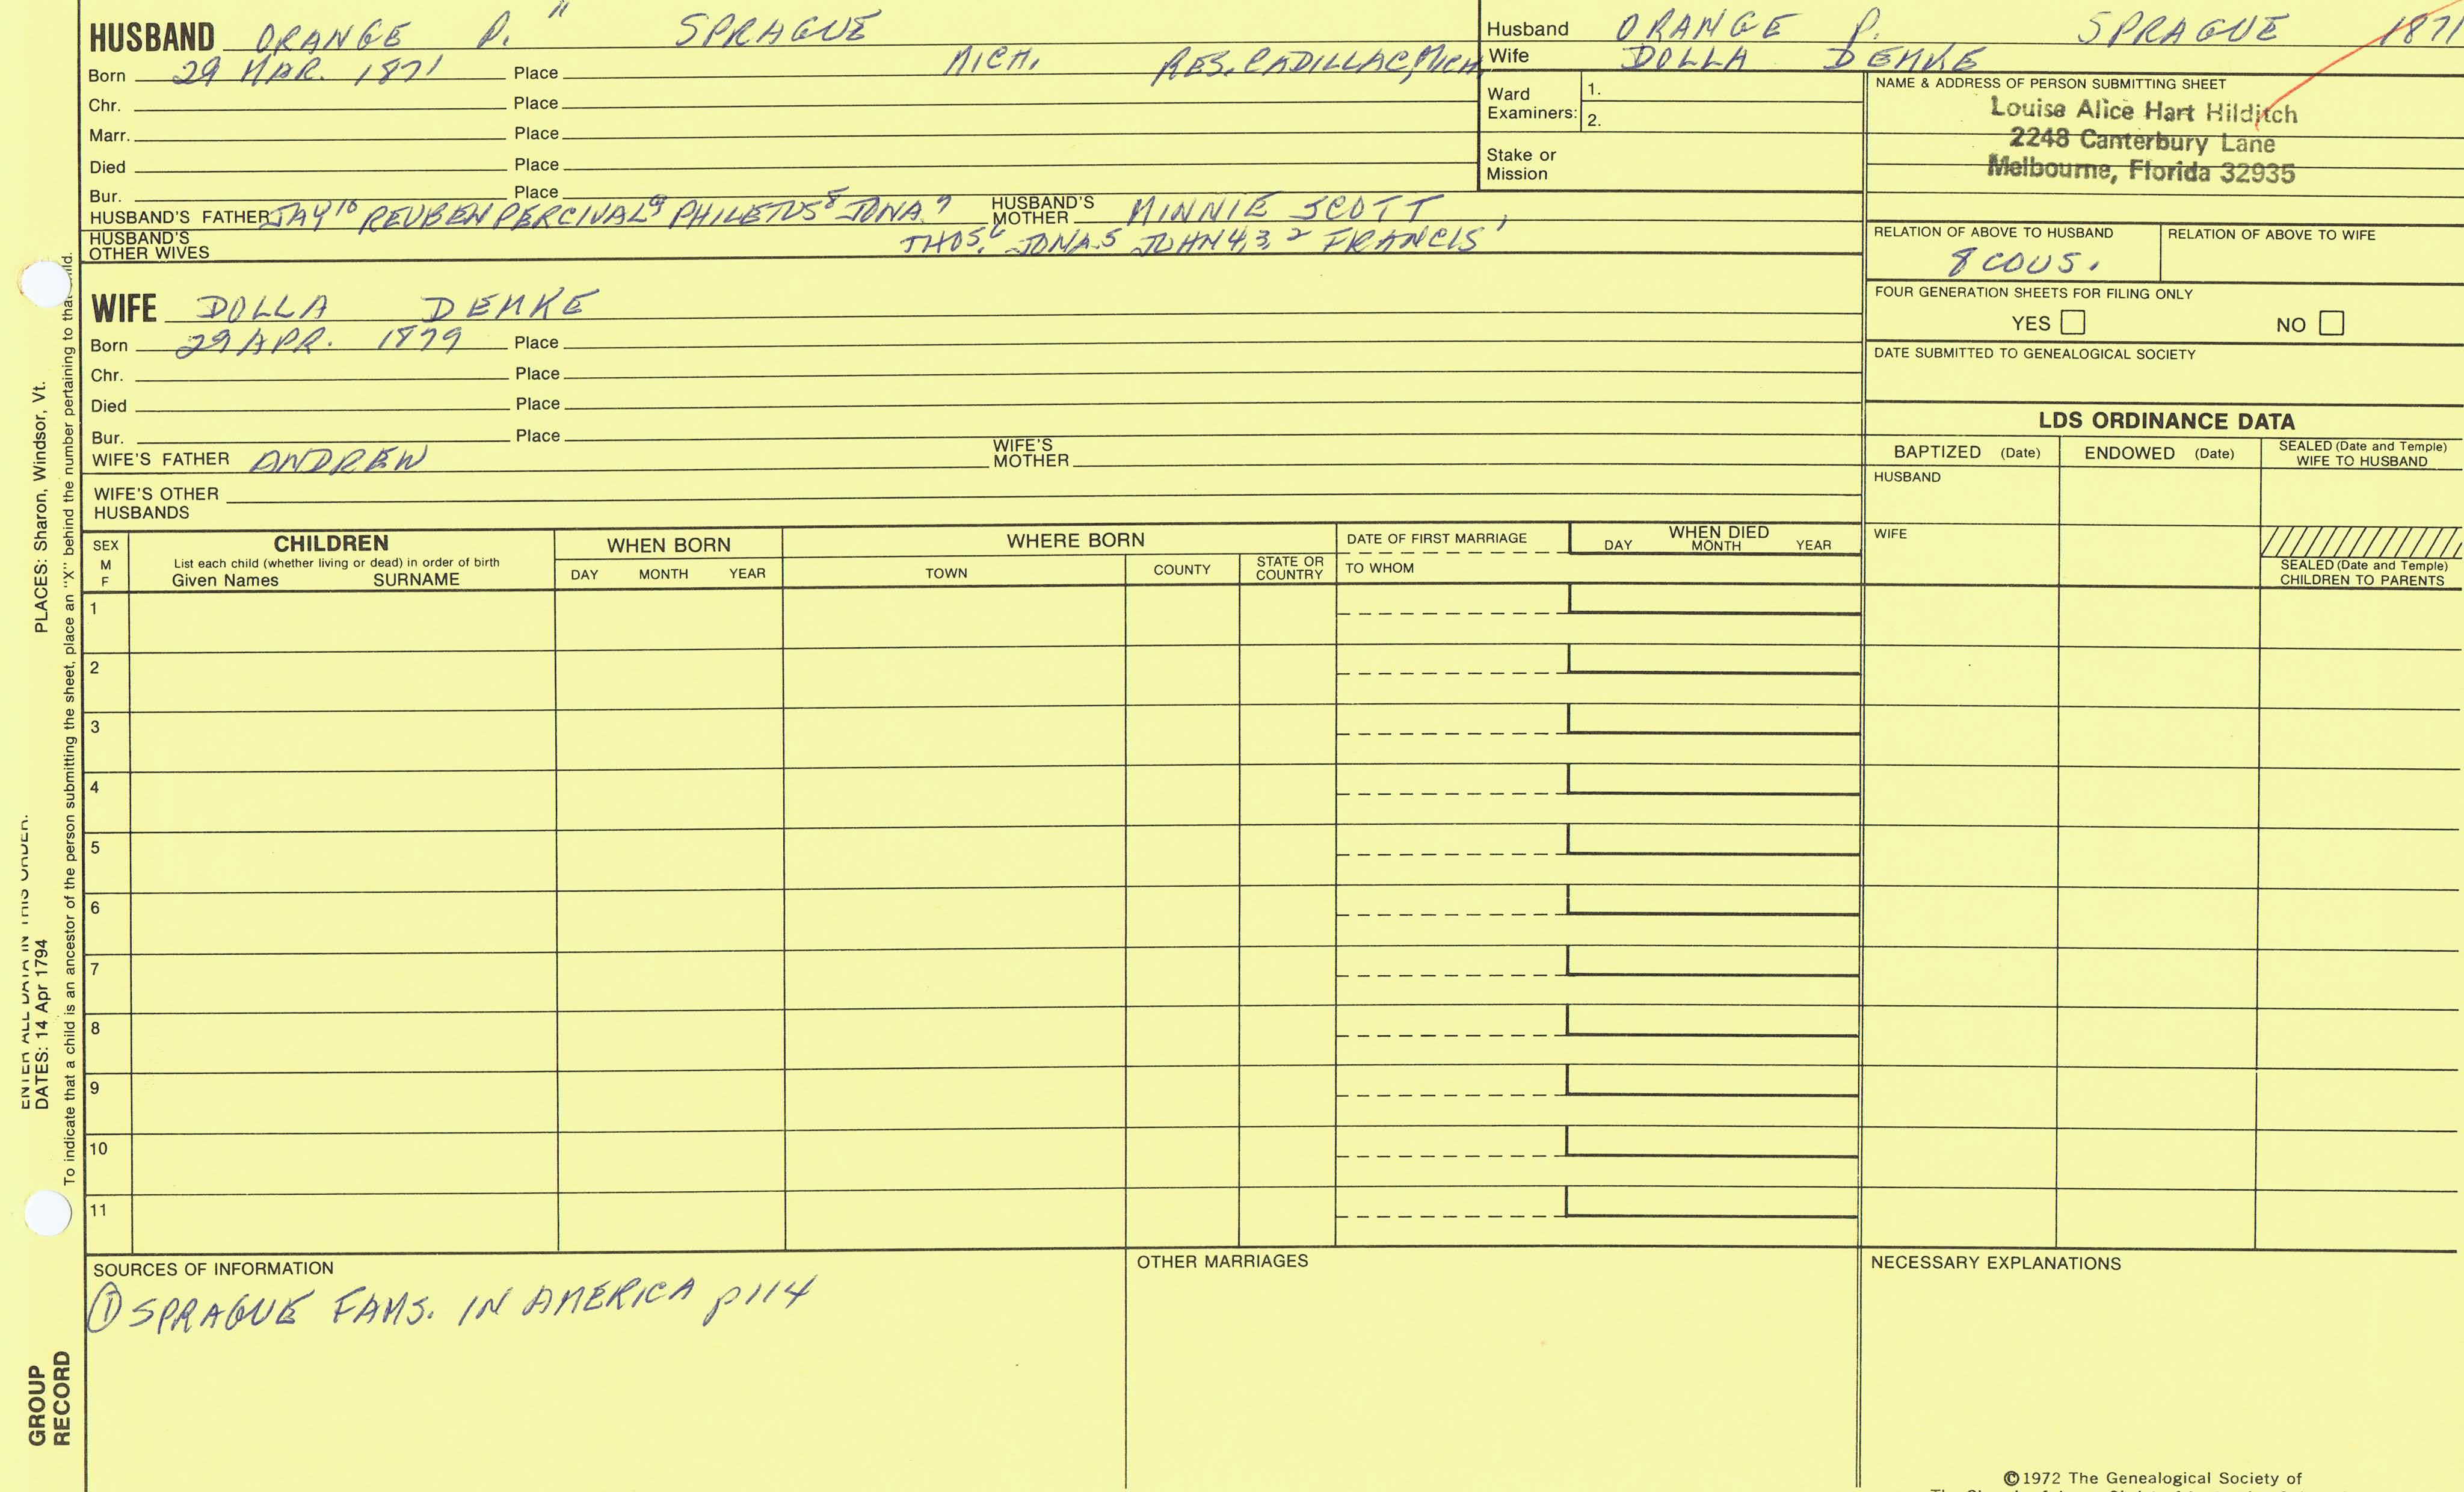 HUSBAND ORANGE P. 11 SPRAGUE
Born 29 MAR. 1871 Place MICH. RES. CADILLAC, MICH
Chr. Place
Marr. Place
Died Place
Bur. Place
HUSBAND'S FATHER JAY 10 REUBEN PERCIVAL 9 PHILETUS 8 JONA 7 HUSBAND'S MOTHER MINNIE SCOTT
HUSBAND'S OTHER WIVES THOS. 6 JONA. 5 JOHN 4, 3, 2 FRANCIS 1
WIFE DOLLA DEMKE
Born 29 APR. 1879 Place
Chr. Place
Died Place
Bur. Place
WIFE'S FATHER ANDREW WIFE'S MOTHER
WIFE'S OTHER HUSBANDS
Husband ORANGE P. SPRAGUE 1871
Wife DOLLA DEMKE
Ward Examiners: 1.
2.
Stake or Mission
NAME & ADDRESS OF PERSON SUBMITTING SHEET
Louise Alice Hart Hilditch
2248 Canterbury Lane
Melbourne, Florida 32935
RELATION OF ABOVE TO HUSBAND RELATION OF ABOVE TO WIFE
8 COUS.
FOUR GENERATION SHEETS FOR FILING ONLY
YES NO
DATE SUBMITTED TO GENEALOGICAL SOCIETY
LDS ORDINANCE DATA
BAPTIZED (Date) ENDOWED (Date) SEALED (Date and Temple) WIFE TO HUSBAND
HUSBAND
WIFE
SEALED (Date and Temple)
CHILDREN TO PARENTS
SEX M F
CHILDREN
List each child (whether living or dead) in order of birth
Given Names SURNAME
WHEN BORN
DAY MONTH YEAR
WHERE BORN
TOWN COUNTY STATE OR COUNTRY
DATE OF FIRST MARRIAGE
TO WHOM
WHEN DIED
DAY MONTH YEAR
1
2
3
4
5
6
7
8
9
10
11
SOURCES OF INFORMATION
① SPRAGUE FAMS. IN AMERICA p114
OTHER MARRIAGES
NECESSARY EXPLANATIONS
©1972 The Genealogical Society of
ENTER ALL DATA IN THIS ORDER.
DATES: 14 Apr 1794 PLACES: Sharon, Windsor, Vt.
To indicate that a child is an ancestor of the person submitting the sheet, place an "X" behind the number pertaining to that child.
GROUP
RECORD